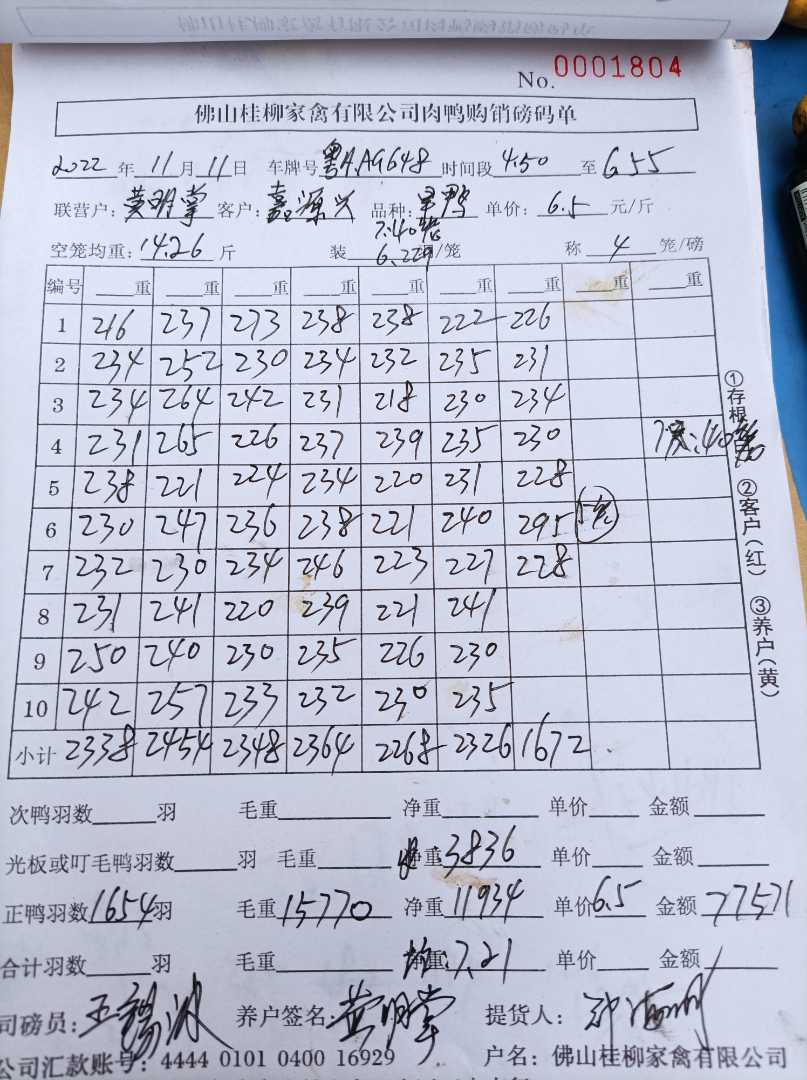 No. 0001804
佛山桂柳家禽有限公司肉鸭购销磅码单
2022 年 11 月 11 日 车牌号 粤A.AG648 时间段 4.50 至 655
联营户: 黄明掌 客户: 嘉源兴 品种: 单价: 6.5 元/斤
7.40笼
空笼均重: 14.26 斤 装 6.22羽/笼 称 4 笼/磅
编号 重 重 重 重 重 重 重 重 重
1 216 237 273 238 238 222 226
2 234 252 230 234 232 235 231
3 234 264 242 231 218 230 234
4 231 265 226 237 239 235 230
5 238 221 224 234 220 231 228
6 230 247 236 238 221 240 295 5笼
7 232 230 234 246 223 227 228
8 231 241 220 239 221 241
9 250 240 230 235 226 230
10 242 257 233 232 230 235
小计 2338 2454 2348 2364 2268 2326 1672
①存根 ②客户(红) ③养户(黄)
次鸭羽数 羽 毛重 净重 单价 金额
光板或叮毛鸭羽数 羽 毛重 净重 3836 单价 金额
正鸭羽数 1654 羽 毛重 15770 净重 11934 单价 6.5 金额 77571
合计羽数 羽 毛重 净重 7.21 单价 金额
司磅员: 王锡冰 养户签名: 黄明掌 提货人:
公司汇款账号: 4444 0101 0400 16929 户名: 佛山桂柳家禽有限公司